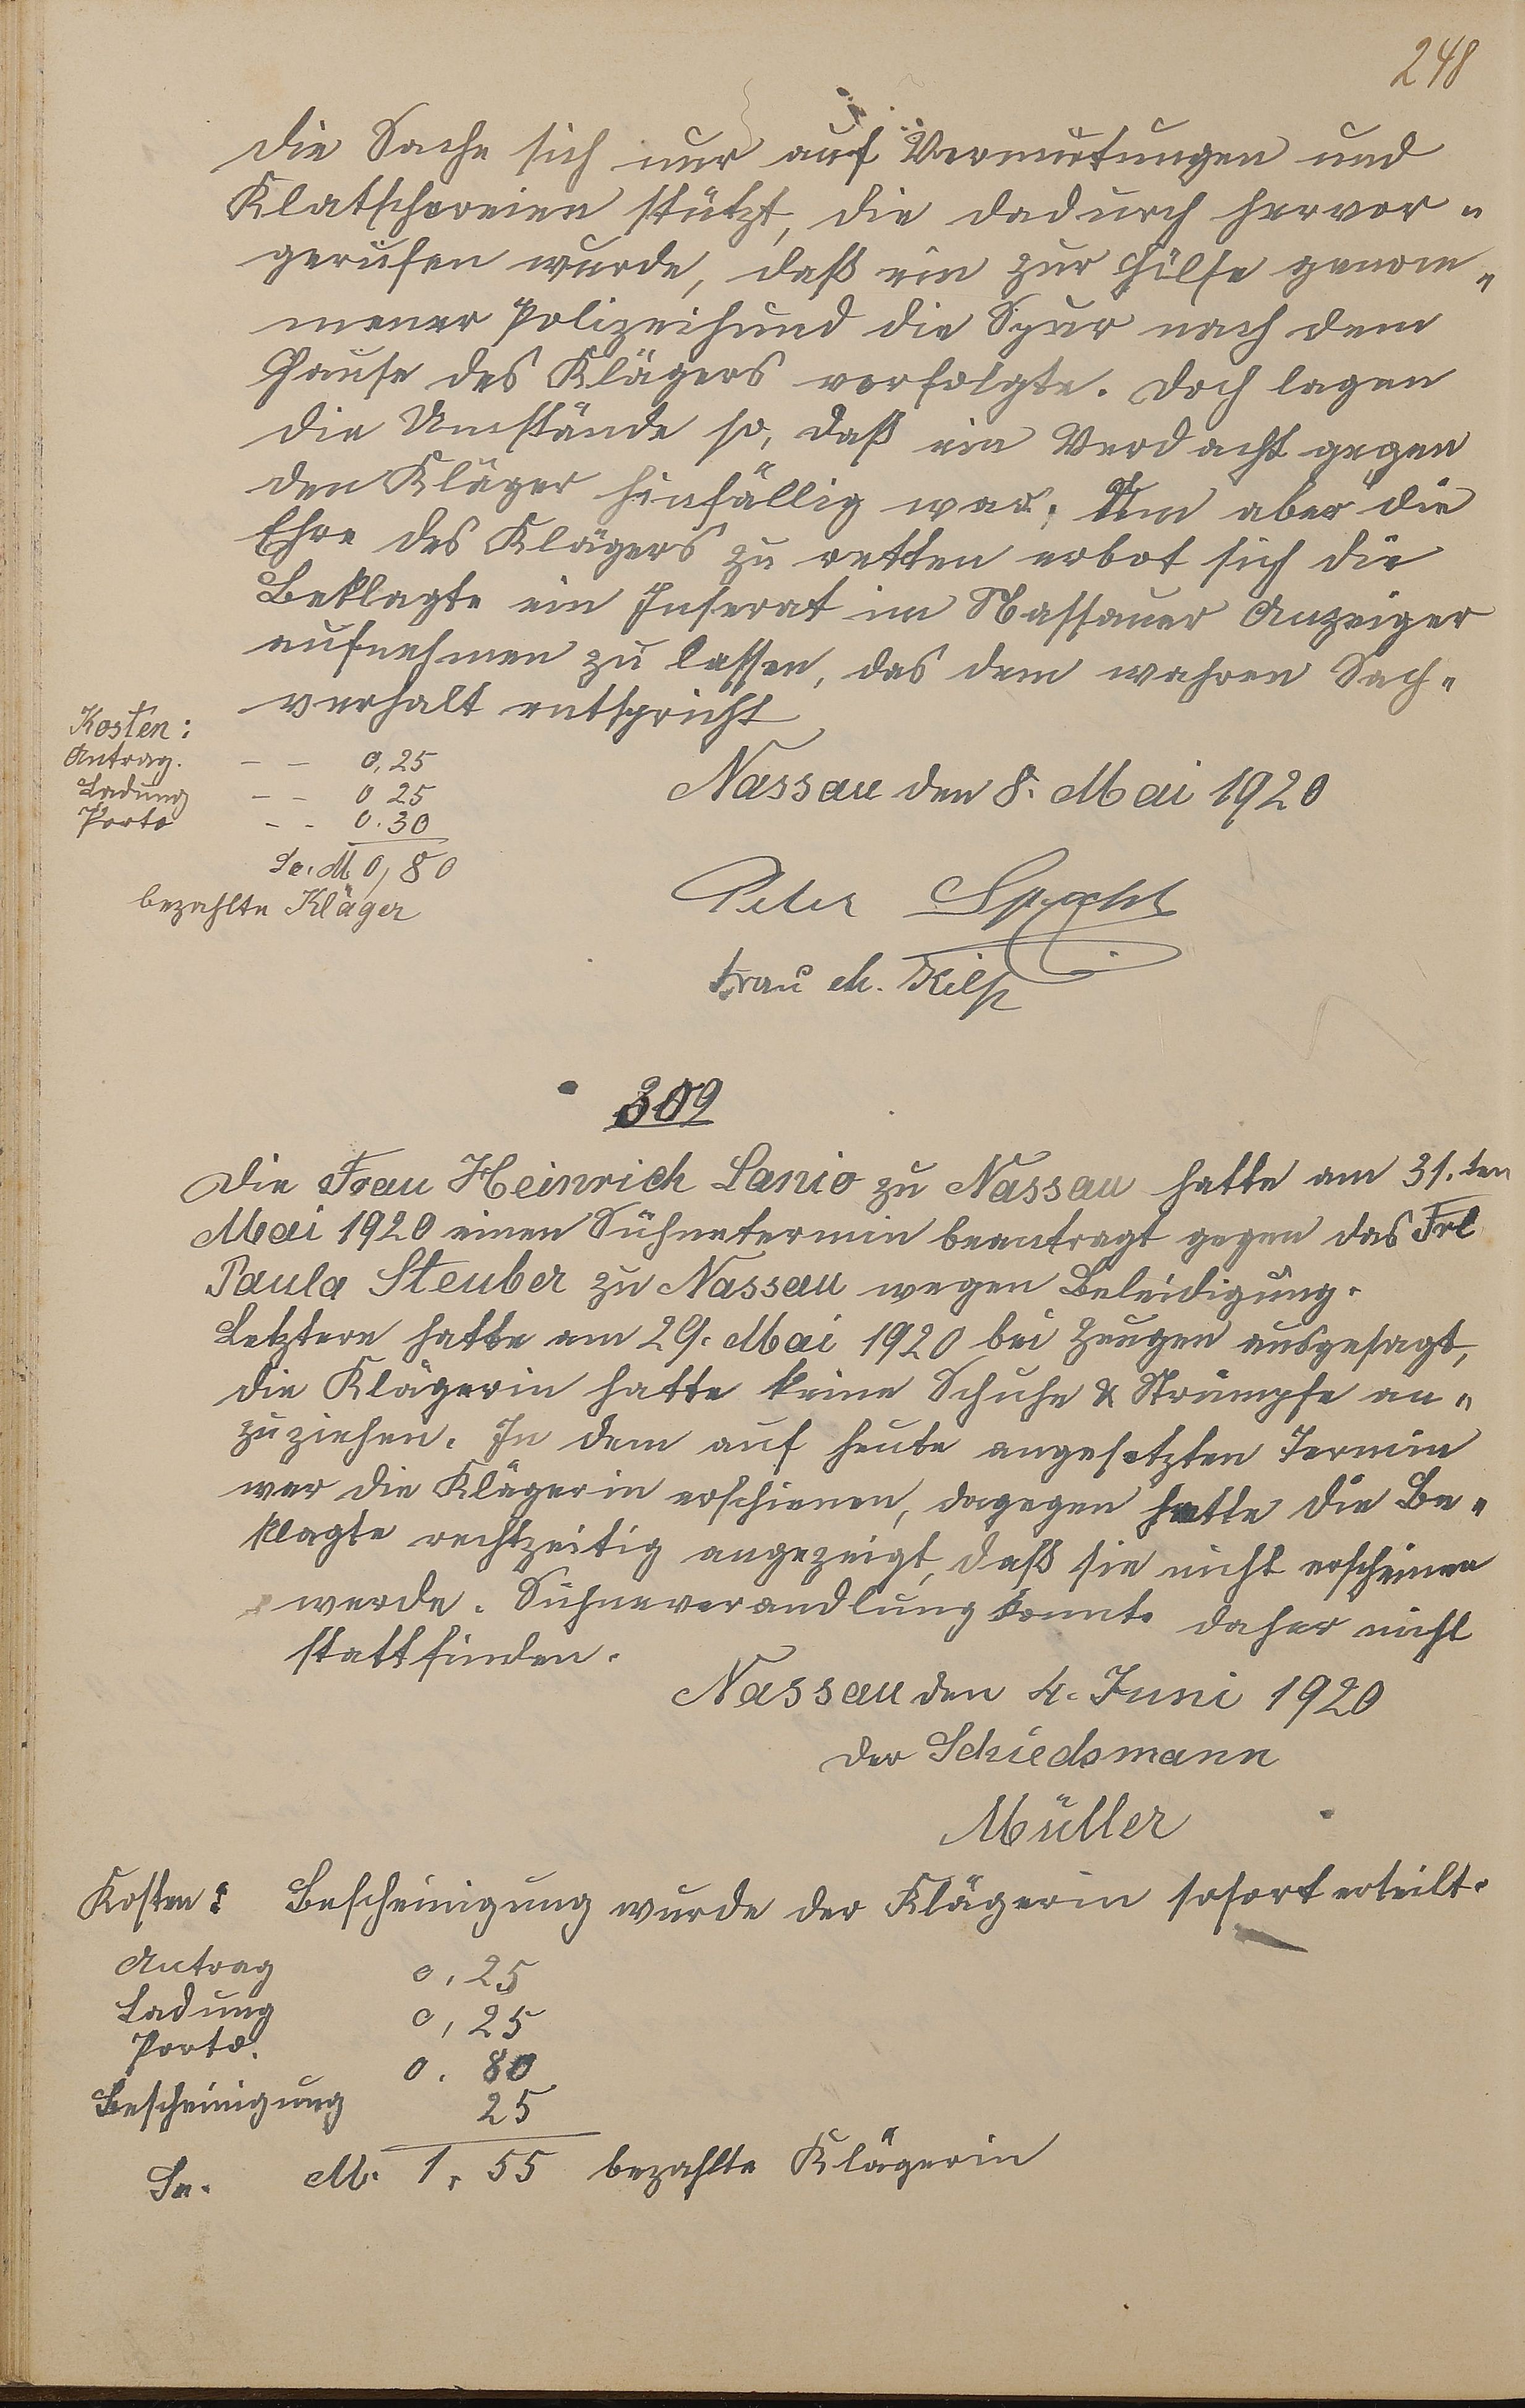 248
die Sache sich nur auf Vermutungen und
Klatschereien stützt, die dadurch hervor„
gerufen wurde, daß ein zur Hilfe genom„
mener Polizeihund die Spur nach dem
Hause des Klägers verfolgte. Doch lagen
die Umstände so, daß ein Verdacht gegen
den Kläger hinfällig war. Um aber die
Ehre des Klägers zu retten erbot sich die
Beklagte ein Inserat im Nassauer Anzeiger
aufnehmen zu lassen, das dem wahren Sach„
verhalt entspricht
Kosten:
Antrag. – – 0,25
Ladung – – 0 25
Porto – – 0.30
Sa. M 0,80
bezahlte Kläger
Nassau den 8. Mai 1920
Peter Specht
Frau M. Kilp
309
Die Frau Heinrich Lanio zu Nassau hatte am 31.ten
Mai 1920 einen Sühnetermin beantragt gegen das Frl
Paula Steuber zu Nassau wegen Beleidigung.
Letztere hatte am 29. Mai 1920 bei Zeugen ausgesagt,
die Klägerin hatte keine Schuhe & Strümpfe an„
zuziehen. In dem auf heute angesetzten Termin
war die Klägerin erschienen, dagegen hatte die Be„
klagte rechtzeitig angezeigt, daß sie nicht erscheinen
werde. Sühneverandlung konnte daher nicht
stattfinden.
Nassau den 4. Juni 1920
Der Schiedsmann
Müller
Kosten: Bescheinigung wurde der Klägerin sofort erteilt.
Antrag 0,25
Ladung 0,25
Porto. 0.80
Bescheinigung 25
Sa. M. 1,55 bezahlte Klägerin